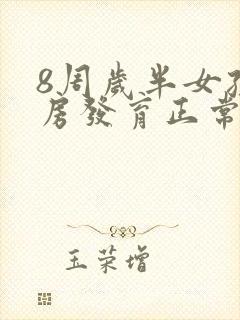 8周歲半女孩
房發育正常
王榮增